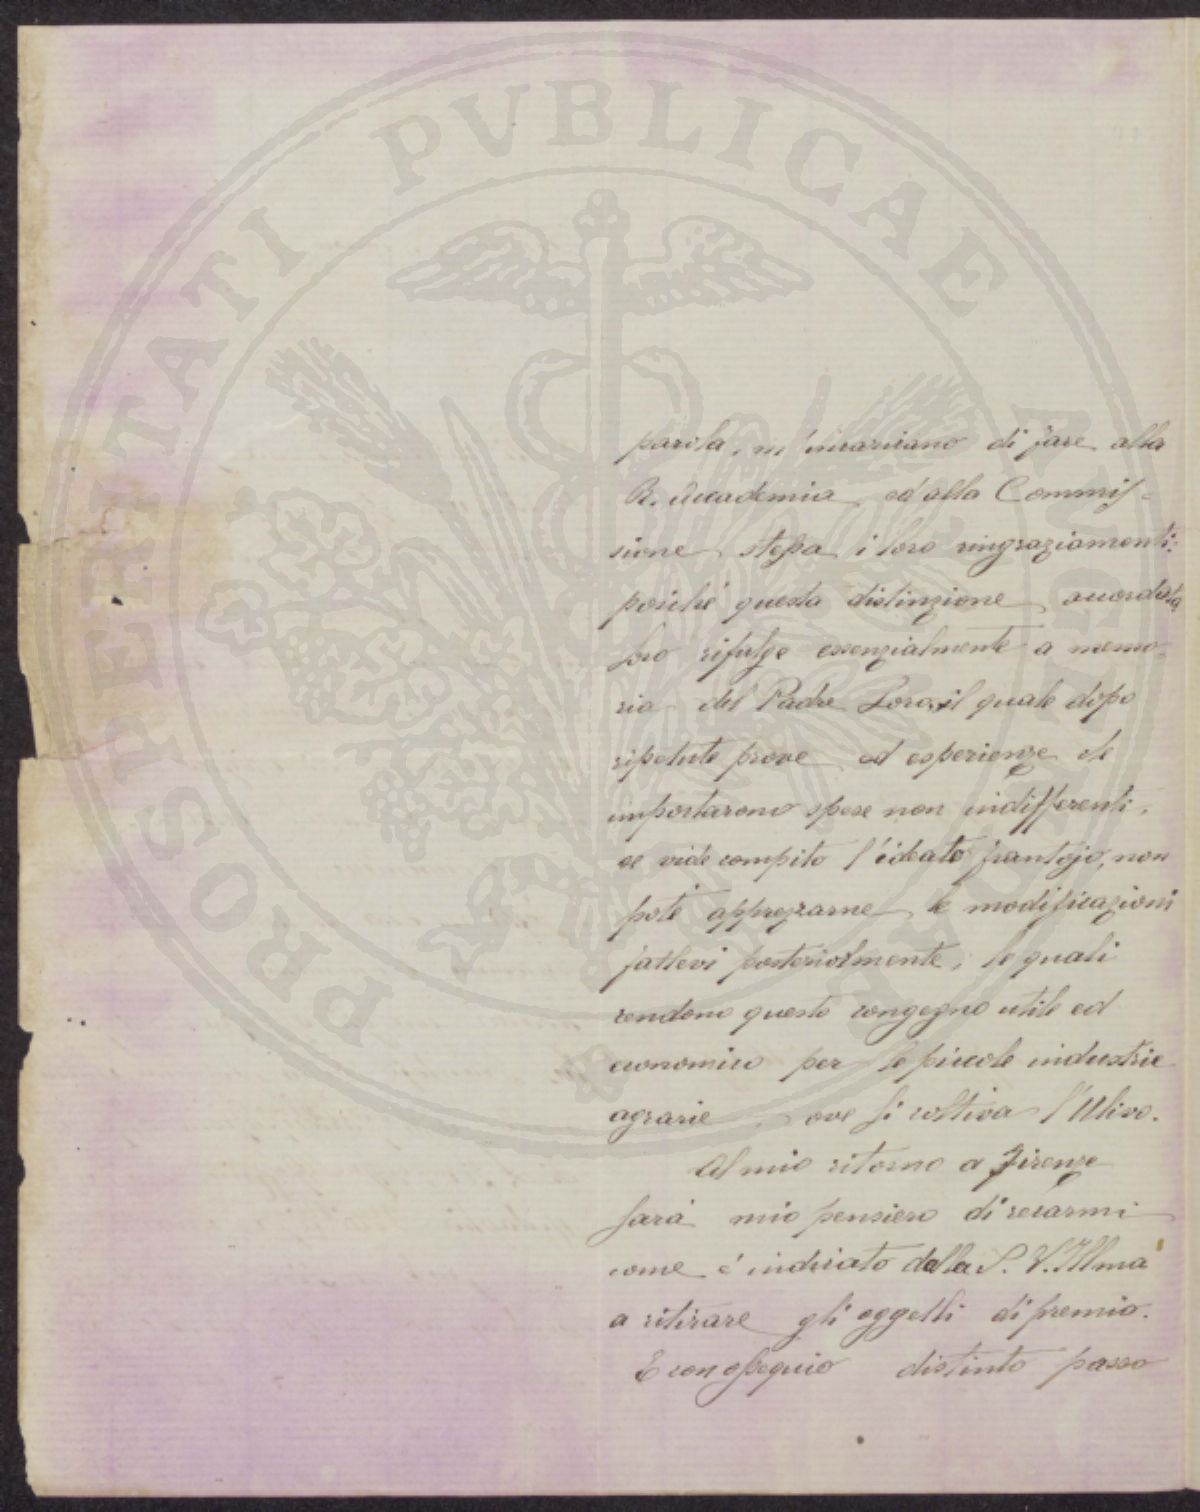 PROSPERITATI PUBLICAE AUGENDAE
parola, m'incaricano di fare alla
R. Accademia, ed alla Commis-
sione stessa i loro ringraziamenti:
poiché questa distinzione accordata
loro rifulge essenzialmente a memo-
ria del Padre Loro, il quale dopo
ripetute prove ed esperienze che
importarono spese non indifferenti,
se vide compito l'ideato frantojo, non
poté apprezzarne le modificazioni
fattevi posteriormente, le quali
rendono questo congegno utile ed
economico per le piccole industrie
agrarie, ove si coltiva l'Ulivo.
Al mio ritorno a Firenze
sarà mio pensiero di recarmi
come è indicato dalla S. V. Illma
a ritirare gli oggetti di premio.
E con ossequio distinto passo